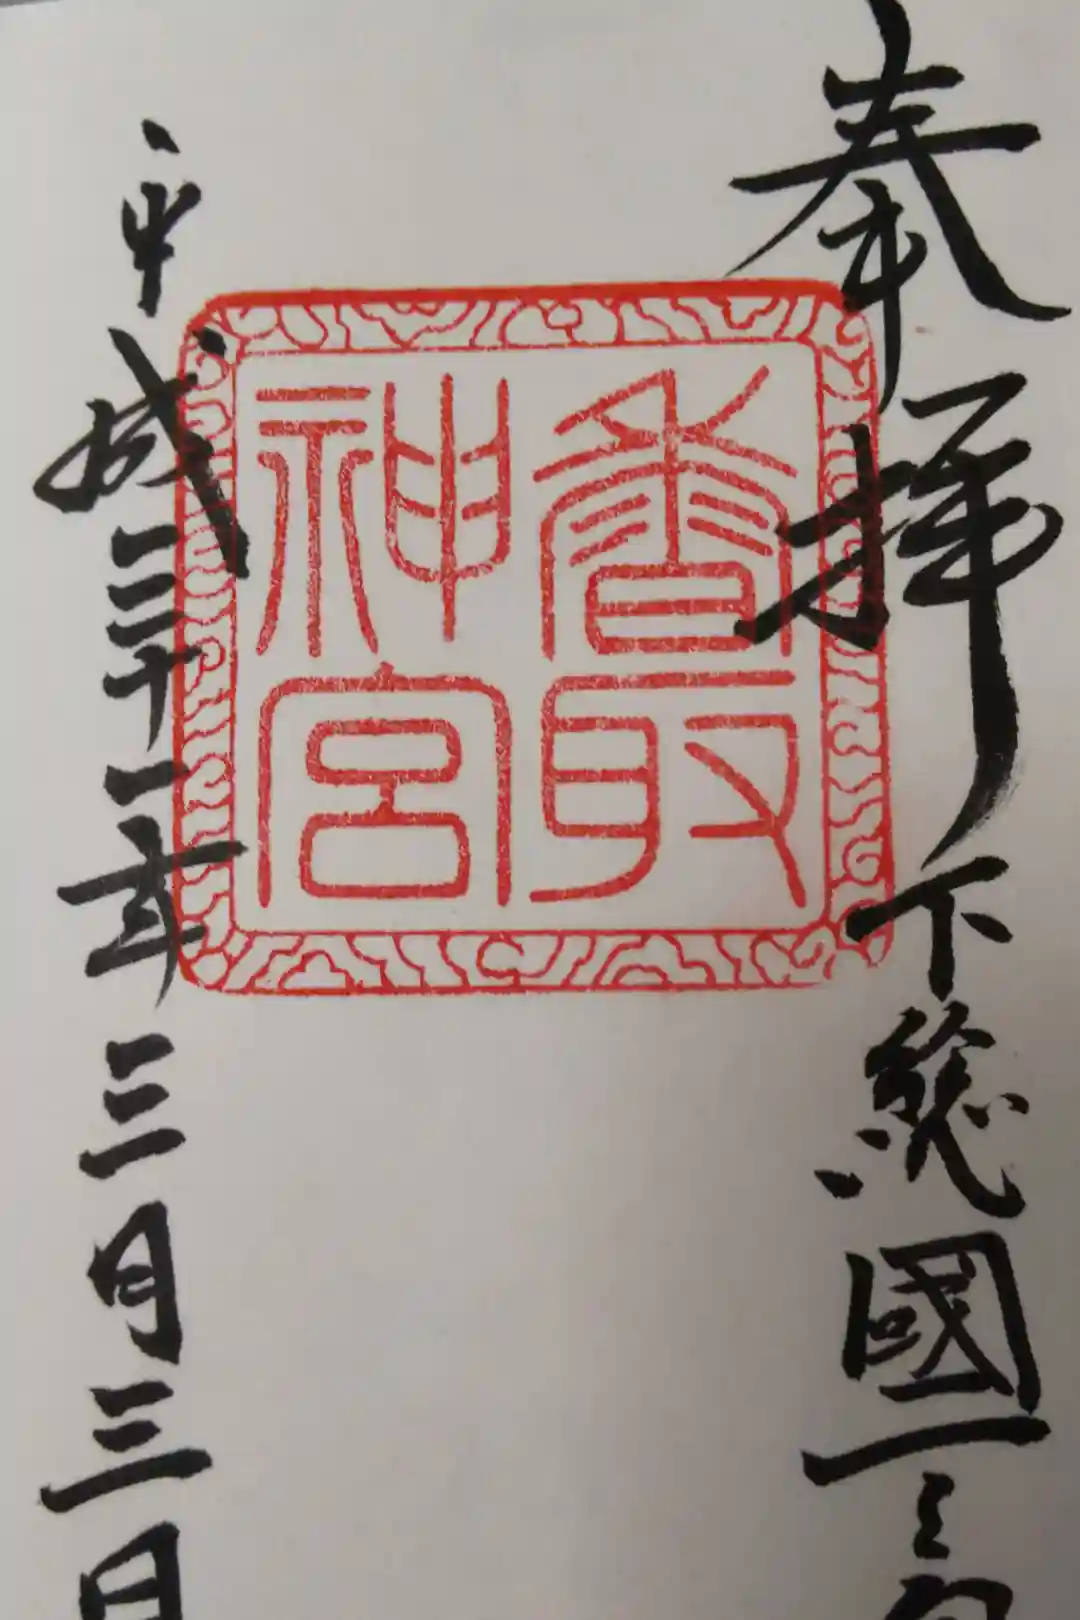 奉拝 下総國一之宮
香取
神宮
平成三十一年三月三日